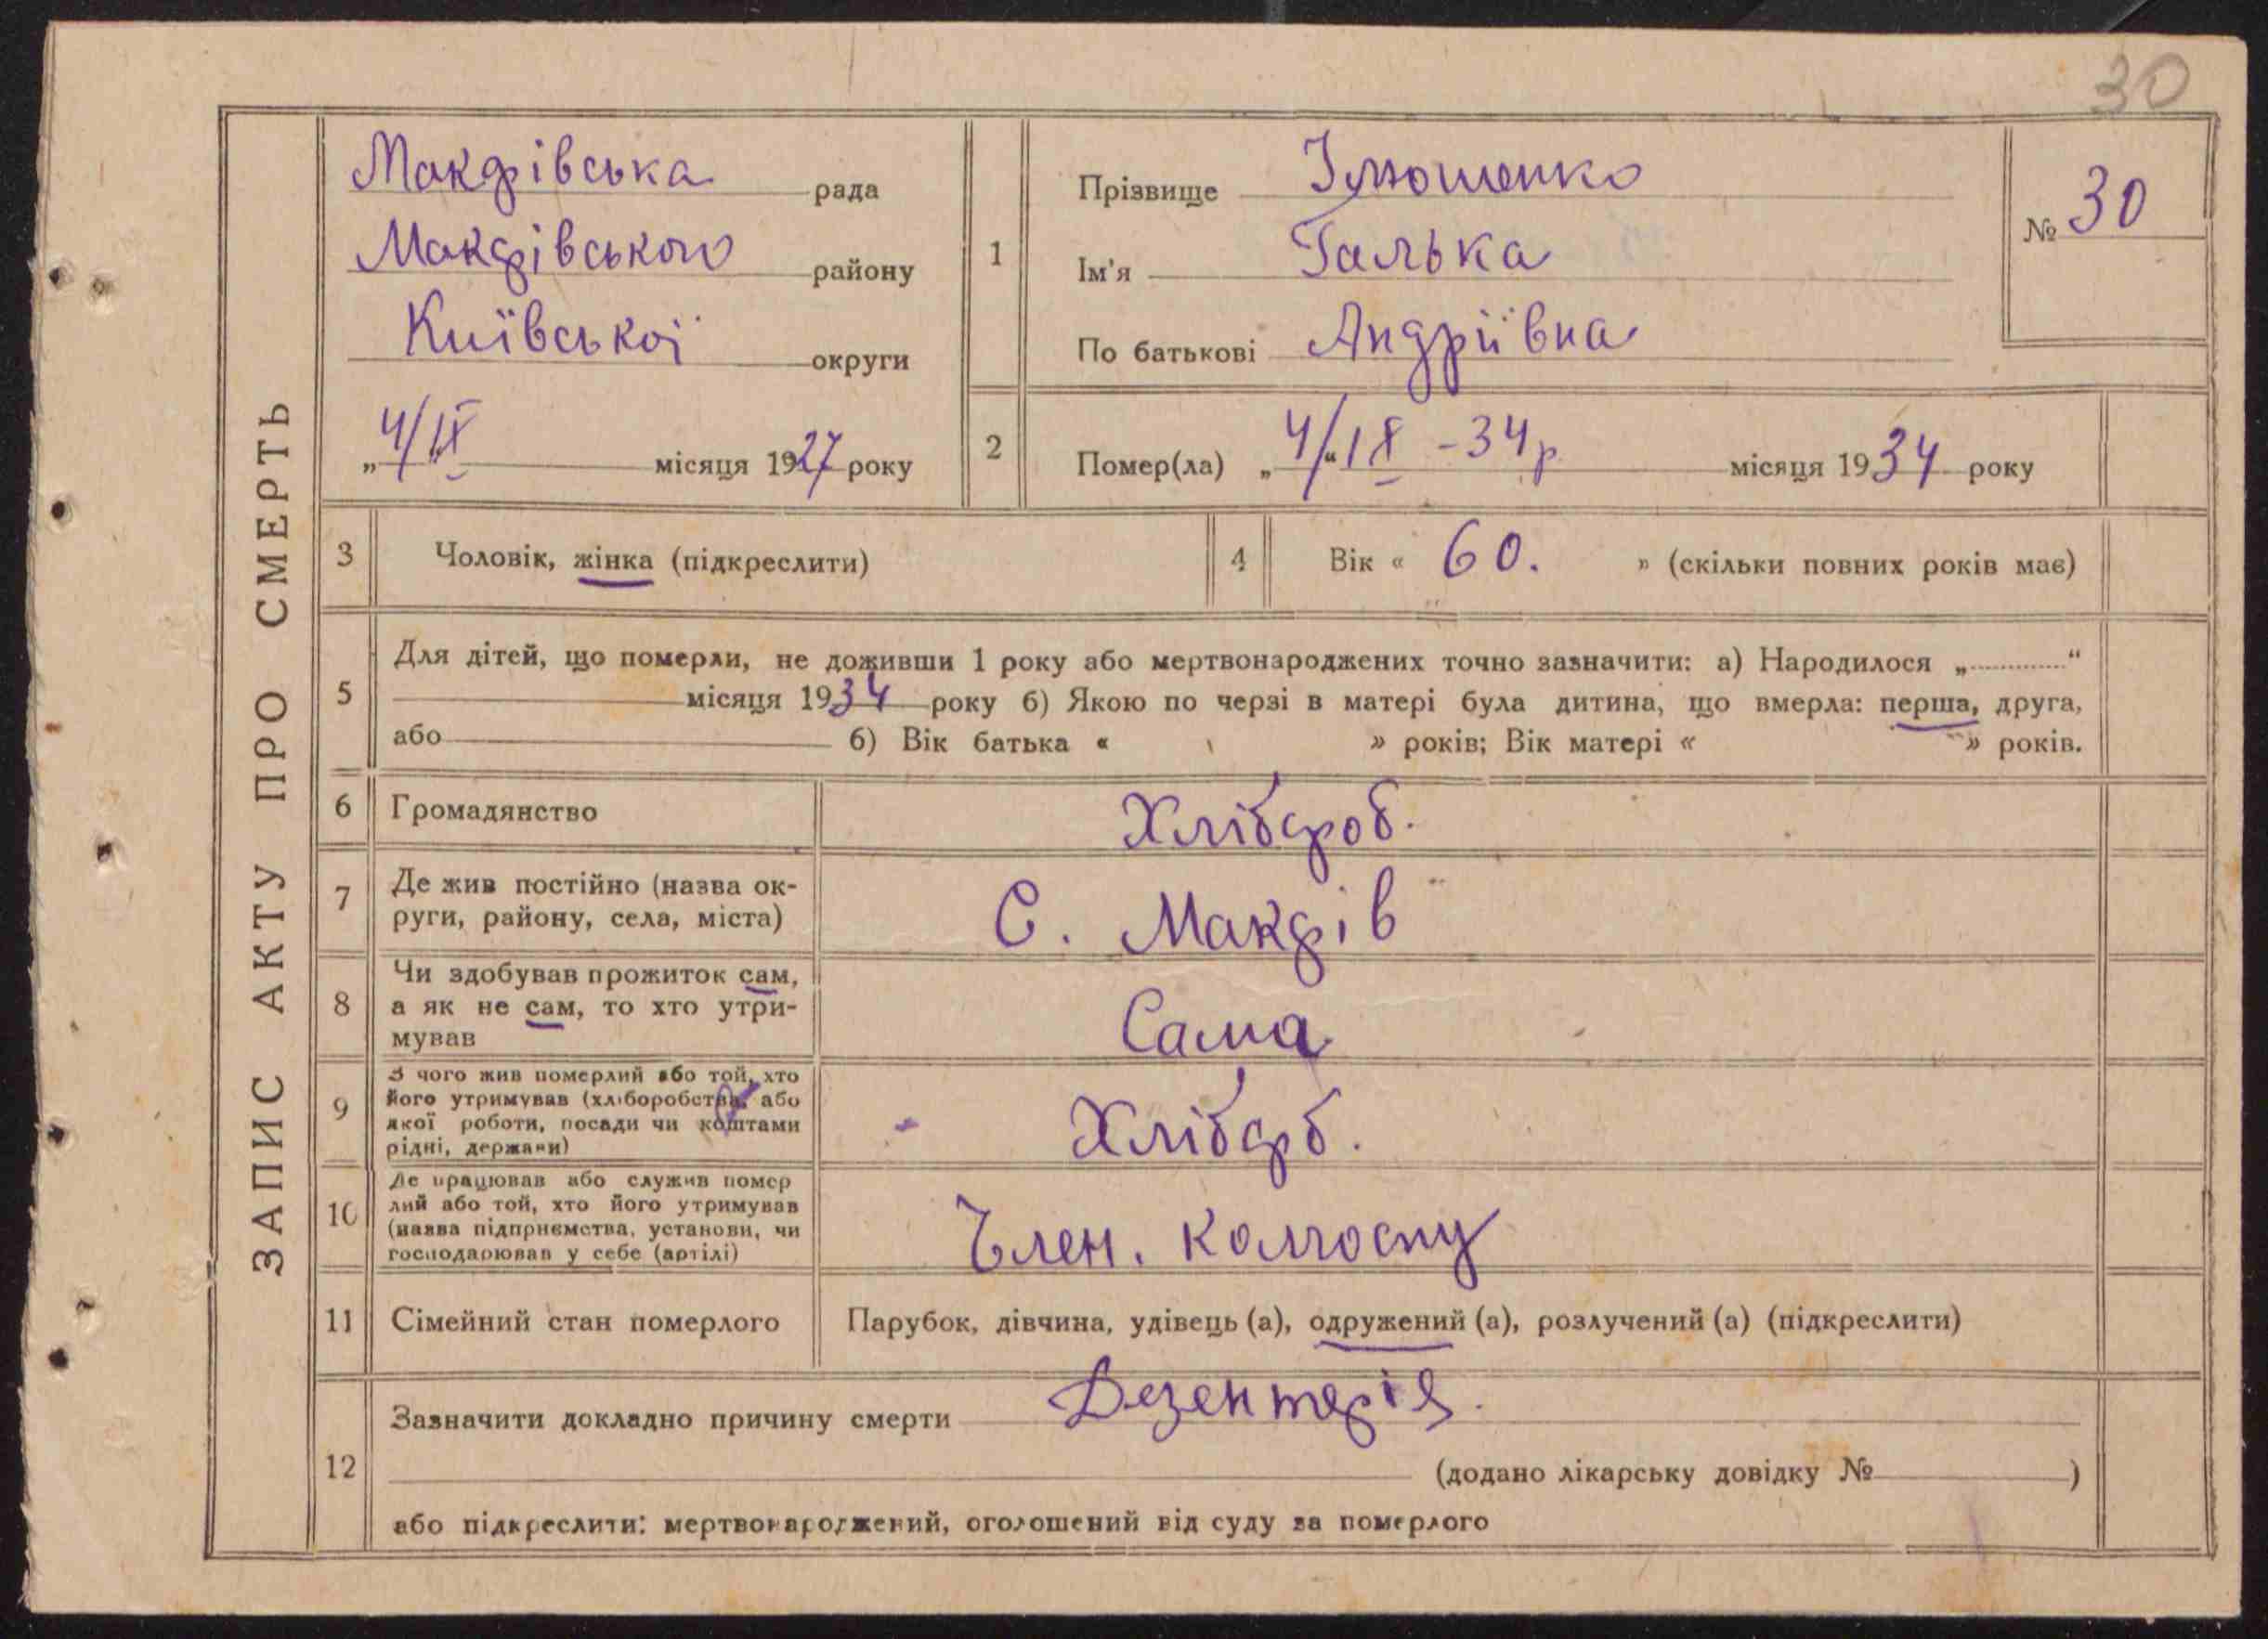 30
ЗАПИС АКТУ ПРО СМЕРТЬ
Макарівська рада
Макарівського району
Київської округи
„4/ІХ“ місяця 1927 року
1
Прізвище Ілюшенко
Ім'я Галька
По батькові Андріївна
№ 30
2
Помер(ла) „4/“ІХ -34р місяця 1934 року
3
Чоловік, жінка (підкреслити)
4
Вік « 60. » (скільки повних років має)
5
Для дітей, що померли, не доживши 1 року або мертвонароджених точно зазначити: а) Народилося „............“
місяця 1934 року б) Якою по черзі в матері була дитина, що вмерла: перша, друга,
або б) Вік батька « » років; Вік матері « » років.
6
Громадянство
Хлібороб.
7
Де жив постійно (назва ок-
руги, району, села, міста)
С. Макарів
8
Чи здобував прожиток сам,
а як не сам, то хто утри-
мував
Сама
9
З чого жив померлий або той, хто
його утримував (хліборобства, або
якої роботи, посади чи коштами
рідні, держави)
Хлібороб.
10
Де працював або служив помер
лий або той, хто його утримував
(назва підприємства, установи, чи
господарював у себе (артілі)
Член. колгоспу
11
Сімейний стан померлого
Парубок, дівчина, удівець (а), одружений (а), розлучений (а) (підкреслити)
12
Зазначити докладно причину смерти Дезентерія.
(додано лікарську довідку № )
або підкреслити: мертвонароджений, оголошений від суду за померлого